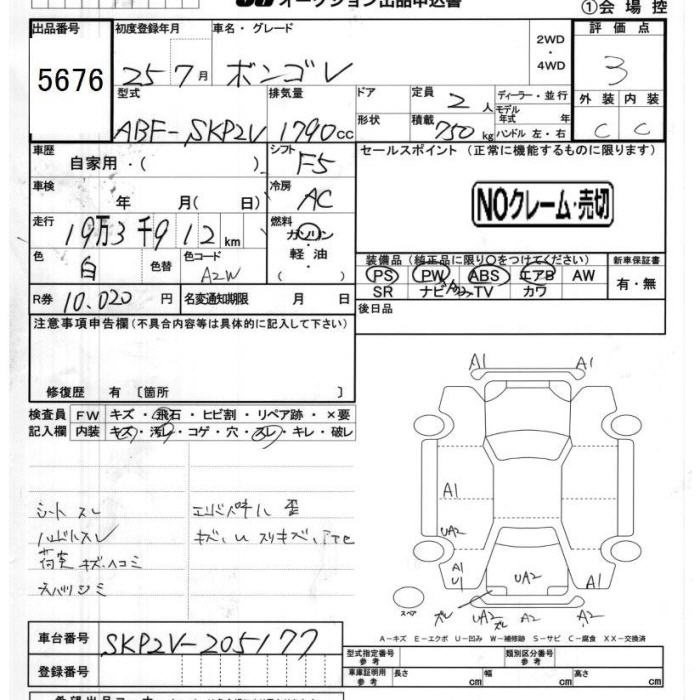 オークション出品申込書
①会場控
出品番号 初度登録年月 車名・グレード 2WD・4WD 評価点
5676 25 7月 ボンゴV 3
型式 排気量 ドア 定員 2人 ディーラー・並行 外装 内装
ABF-SKP2V 1790cc 形状 積載 750kg モデル年式 年 ハンドル 左・右 C C
車歴 自家用・( ) シフト F5 セールスポイント (正常に機能するものに限ります)
車検 年 月( 日) 冷房 AC NOクレーム・売切
走行 19万3千912km 燃料 ガソリン・軽油 ( )
色 白 色替 色コード A2W
装備品 (純正品に限り○をつけてください) 新車保証書
PS PW ABS エアB AW 有・無
SR ナビ・TV カワ
R券 10.020円 名変通知期限 月 日
後日品
注意事項申告欄(不具合内容等は具体的に記入して下さい)
修復歴 有 〔箇所 〕
検査員記入欄 FW キズ・飛石・ヒビ割・リペア跡・×要
内装 キズ・汚レ・コゲ・穴・スレ・キレ・破レ
シート スレ
ハンドルスレ
荷室 キズヘコミ
天バリシミ
A1 A1
A1
UA2
A1
U1
UA2
A1
スペア
ズレ UA2 ズレ A2 A2
A-キズ E-エクボ U-凹み W-補修跡 S-サビ C-腐食 XX-交換済
車台番号 SKP2V-205177
登録番号
型式指定番号 参考 類別区分番号 参考
車庫証明用 参考 長さ cm 幅 cm 高さ cm
希望出品コーナー